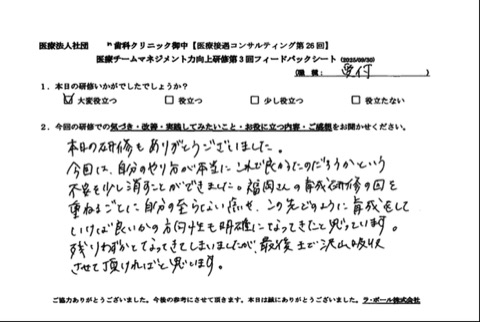 医療法人社団 歯科クリニック御中【医療接遇コンサルティング第26回】
医療チームマネジメント力向上研修第3回フィードバックシート (2025/09/30)
(職種: 受付 )
1．本日の研修いかがでしたでしょうか？
大変役立つ 役立つ 少し役立つ 役立たない
2．今回の研修での気づき・改善・実践してみたいこと・お役に立つ内容・ご感想をお聞かせください。
本日の研修もありがとうございました。
今回は、自分のやり方が本当にこれで良かったのだろうかという
不安を少し消すことができました。福岡さんの育成研修の回を
重ねるごとに自分の至らない点や、この先どのように育成をして
いけば良いかの方向性も明確になってきたと思っています。
残りわずかとなってきてしまいましたが、最後まで沢山吸収
させて頂ければと思います。
ご協力ありがとうございました。今後の参考にさせて頂きます。本日は誠にありがとうございました。ラ・ポール株式会社